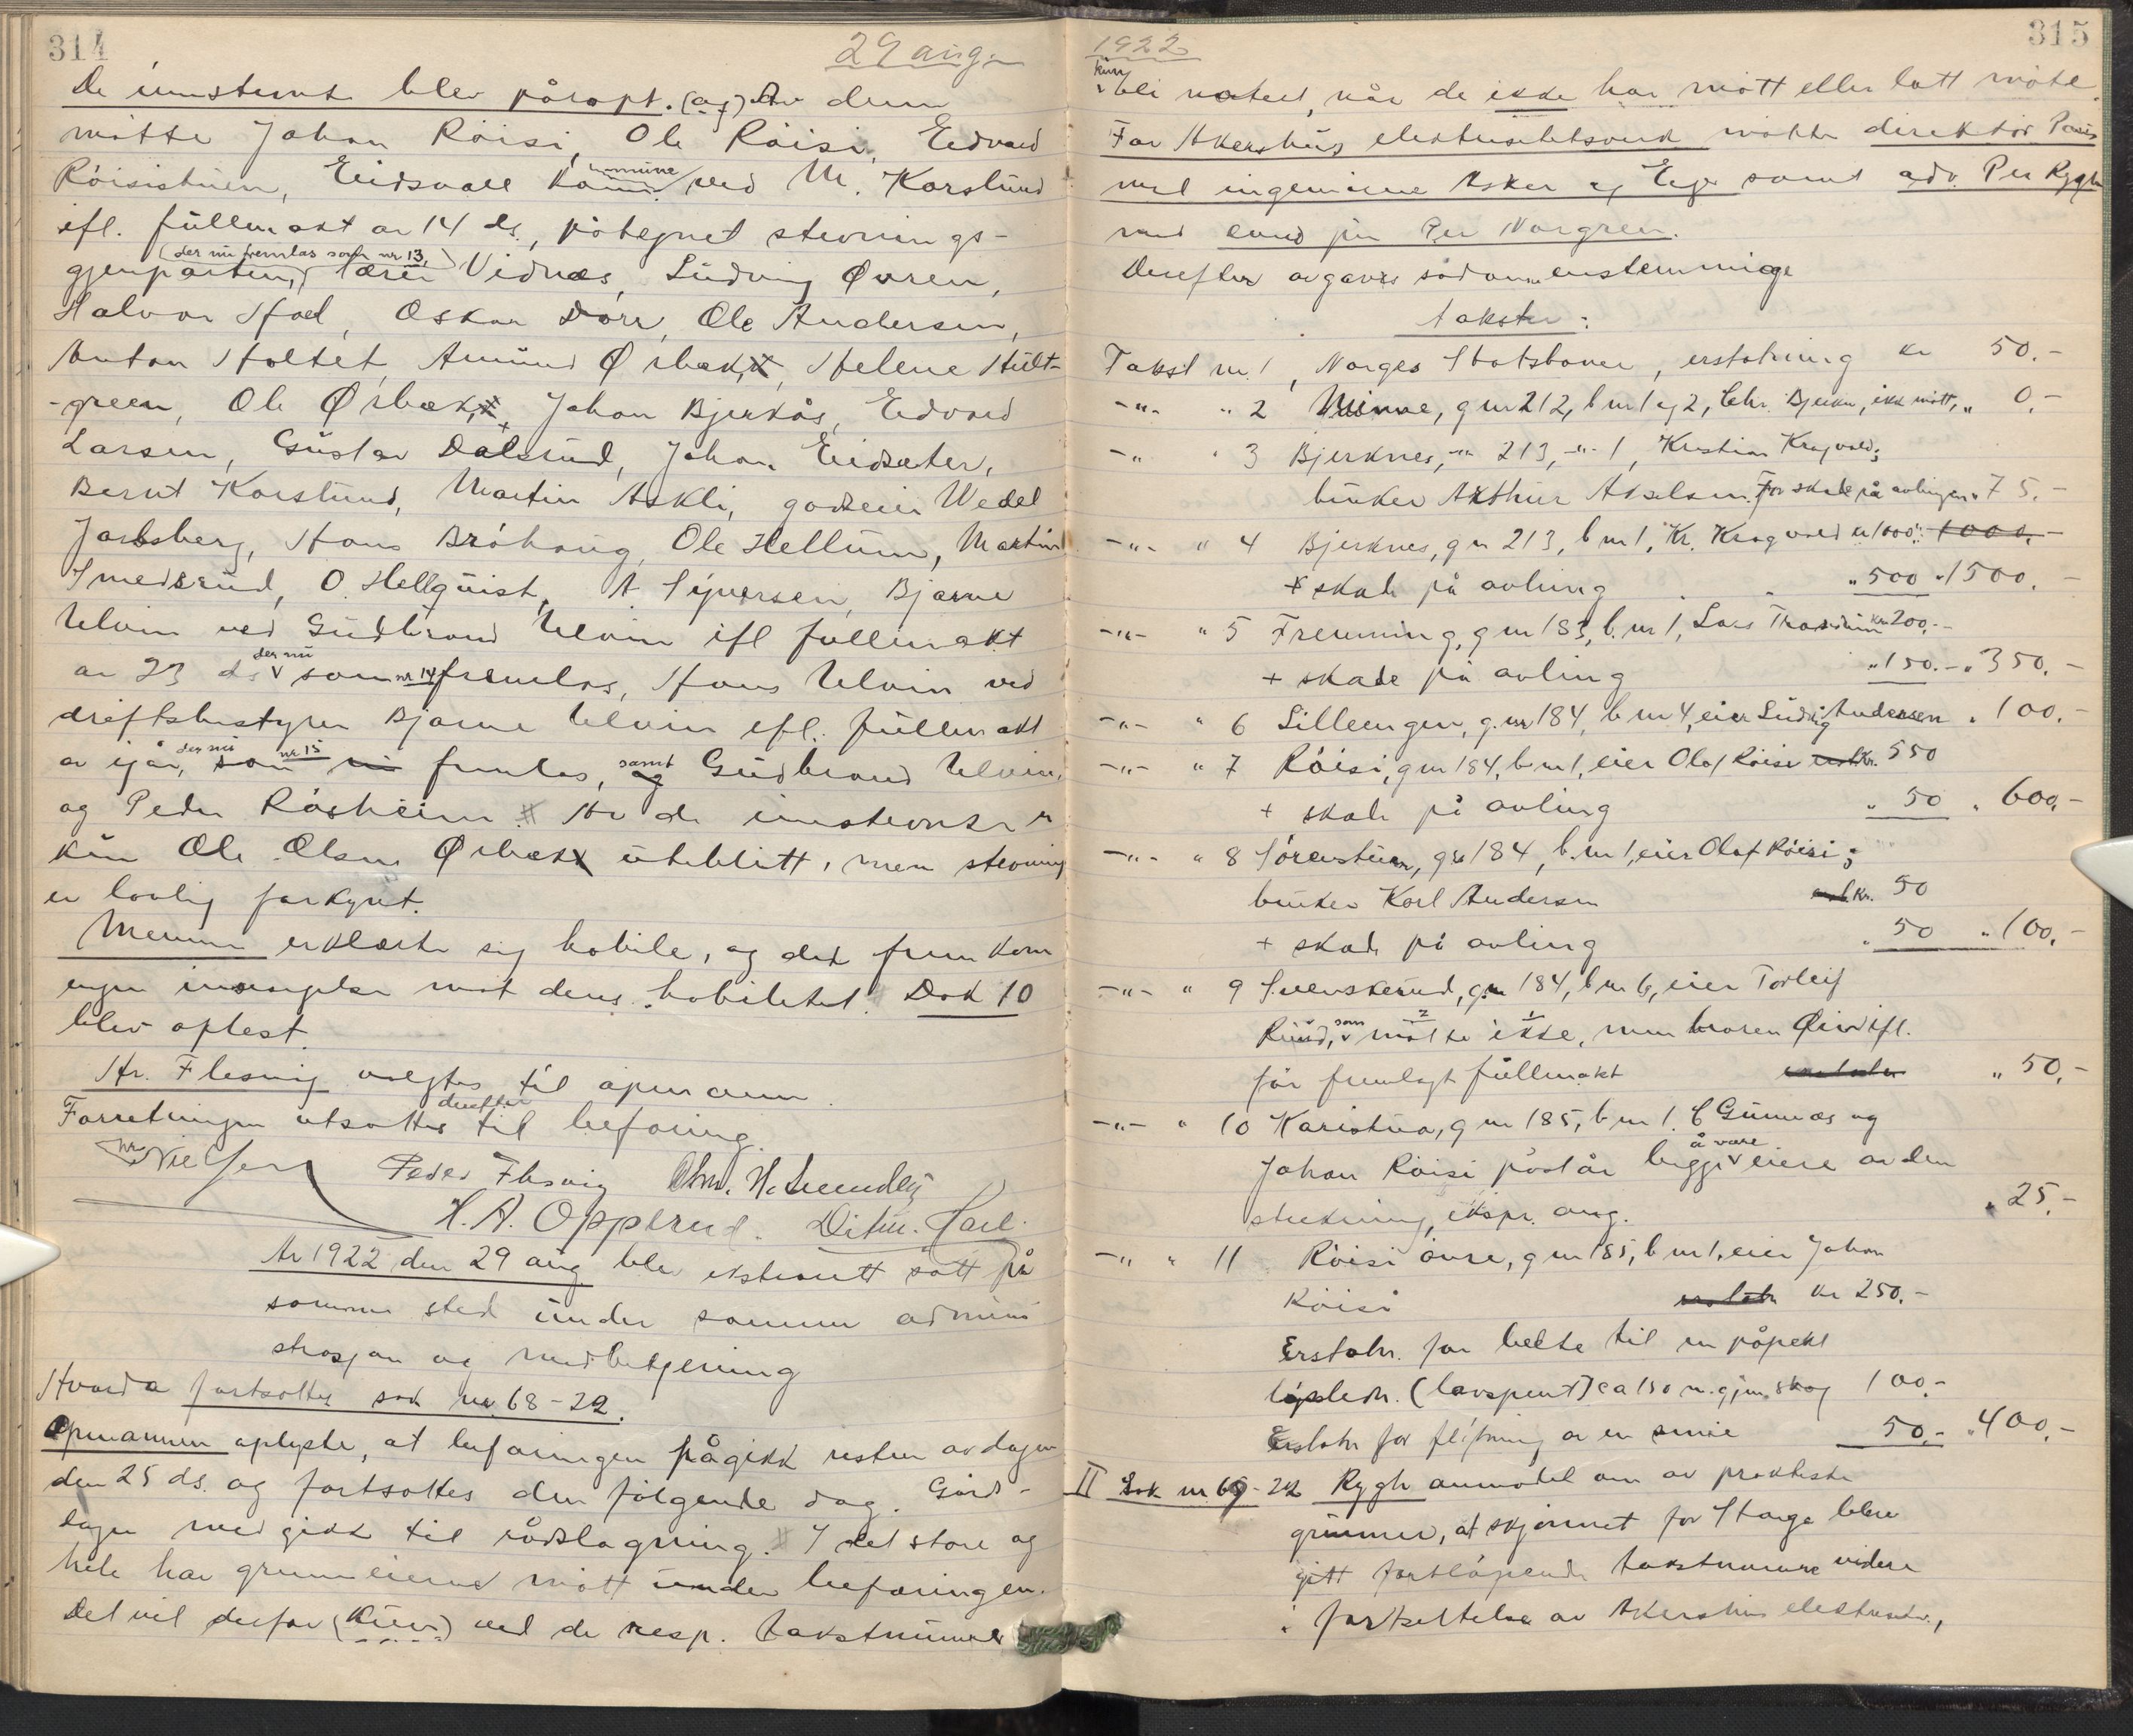 314
29 aug.
De innstevnte blev påropt. (og) Av dem
møtte Johan Röisi, Ole Röisi, Edvard
Röisistuen, Eidsvoll kommune ved M. Karslund
ifl. fullmakt av 14 ds., påtegnet stevnings-
gjenparten, (der nu fremlas som nr 13,) lærer Vidnes, Ludvig Øvren,
Halvor Hoel, Oskar Dorr, Ole Andersen,
Anton Holtet, Amund Ørbæk, Helene Hult-
-green, Ole Ørbæk, Johan Bjerkås, Edvard
Larsen, Gustav Dalsrud, Johan Eidsæter,
Bernt Karslund, Martin Askli, godseier Wedel
Jarlsberg, Hans Bröhaug, Ole Hellum, Martin
Smedsrud, O. Hellquist, A. Syversen, Bjarne
Ulvin ved Gudbrand Ulvin ifl fullmakt
av 23 ds der nu som nr 14 fremlas, Hans Ulvin ved
driftsbestyrer Bjarne Ulvin ifl. fullmakt
av igår, der nu som nr 15 fremlas, samt Gudbrand Ulvin
og Peder Råsheim. Av de innstevnte er
kun Ole Olsen Ørbæk uteblitt, men stevning
er lovlig forkynt.
Mennene erklærte sig habile, og det fremkom
ingen innsigelse mot deres habilitet. Dok 10
blev oplest.
Hr. Flesvig valgtes til opmann.
Forretningen utsattes derefter til befaring.
Nielsen Peder Flesvig Chr. H. Lundby
H. A. Opperud. Ditm. Hael.
År 1922 den 29 aug blev ekstrarett satt på
samme sted under samme admini
strasjon og medbetjening
Hvorda fortsattes sak nr. 68-22.
Opmannen oplyste, at befaringen pågikk resten av dagen
den 25 ds. og fortsattes den følgende dag. Gårs-
dagen medgikk til rådslagning. I det store og
hele har grunneierne møtt under befaringen.
Det vil derfor (kun) ved de resp. takstnummer
1922
315
kun bli notert, når de ikke har møtt eller latt møte.
For Akershus elektrisitetsverk møtte direktør
med ingeniørene Asker og Eger samt adv. Per Rygh
med cand jur Per Norgren.
Derefter avgaves sådanne enstemmige
takster:
Takst nr. 1, Norges Statsbaner, erstatning kr 50.-
-"- " 2 Minne, g nr 212, b nr 1 og 2, Chr. Bjerke, ikke møtt, " 0,-
-"- " 3 Bjerknes, -"- 213, -"- 1, Kristian Kragvold;
bruker Arthur Akselsen. For skade på avlingen " 75.-
-"- " 4 Bjerknes, g nr 213, b nr 1, Kr. Kragvold kr 1000.- 1000.-
+ skade på avling " 500 " 1500.-
-"- " 5 Fremming, g nr 183, b. nr 1, Lars kr 200.-
+ skade på avling " 150.- " 350.-
-"- " 6 Lilleengen, g. nr 184, b nr 4, eier Ludvig Andersen " 100.-
-"- " 7 Röisi, g nr 184, b nr 1, eier Olaf Röisi kr. 550
+ skade på avling " 50 " 600,-
-"- " 8 Sörenstuen, g nr 184, b. nr 1, eier Olaf Röisi;
bruker Karl Andersen kr. 50
+ skade på avling " 50 " 100,-
-"- " 9 Svenskerud, g nr 184, b nr 6, eier Torleif
Ruud, som møtte ikke, men broren Eivind ifl.
før fremlagt fullmakt " 50,-
-"- " 10 Karistua, g nr 185, b nr 1. C Gunnes og
Johan Röisi påstår begge å være eiere av den
strekning, ekspr. ang. " 25,-
-"- " 11 Röisi övre, g nr 185, b nr 1, eier Johan
Röisi kr 250.-
Erstatn. for belte til en påpekt
(lavspent) ca 150 m. gjen. skog 100.-
Erstatn for flytning av en smie 50.- " 400,-
II Sak nr. 69-22 Rygh anmodet om av praktiske
grunner, at skjønnet for Stange blev
gitt fortløpende takstnumre videre
i fortsettelse av Akershus elektrisitv.,